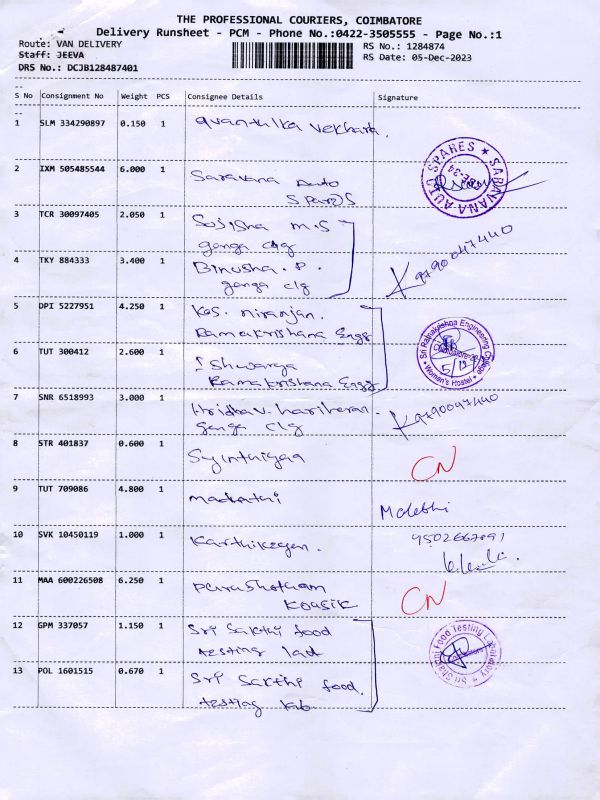 THE PROFESSIONAL COURIERS, COIMBATORE
Delivery Runsheet - PCM - Phone No.:0422-3505555 - Page No.:1
Route: VAN DELIVERY
RS No.: 1284874
Staff: JEEVA
RS Date: 05-Dec-2023
DRS No.: DCJB128487401
S No Consignment No Weight PCS Consignee Details Signature
1 SLM 334290897 0.150 1
2 IXM 505485544 6.000 1 Saravana Auto
Spares
SARAVANA AUTO SPARES
3 TCR 30097405 2.050 1 Sojisha m.s
ganga clg
4 TKY 884333 3.400 1 Binusha. P.
ganga clg
9790047440
5 DPI 5227951 4.250 1 Kes. niranjan.
Ramakrishana Engg
6 TUT 300412 2.600 1 Ishwarya
Ramakrishana Engg
Sri Ramakrishna Engineering College
Women's Hostel
7 SNR 6518993 3.000 1 Hridha v. hariharan.
ganga clg
9790047440
8 STR 401837 0.600 1
CN
9 TUT 709086 4.800 1
10 SVK 10450119 1.000 1 Karthikeyan.
11 MAA 600226508 6.250 1 Parushotham
Kousik
CN
12 GPM 337057 1.150 1 Sri Sakthi food
testing lad
13 POL 1601515 0.670 1 Sri Sakthi food.
testing lab
Food Testing Laboratory